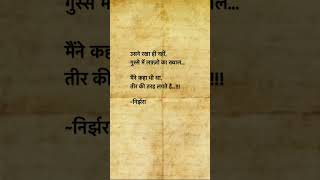 उसने रखा ही नहीं,
गुस्से में लफ़्ज़ो का ख्याल...
मैंने कहा भी था,
तीर की तरह लगते हैं...!!!
~निर्झरा